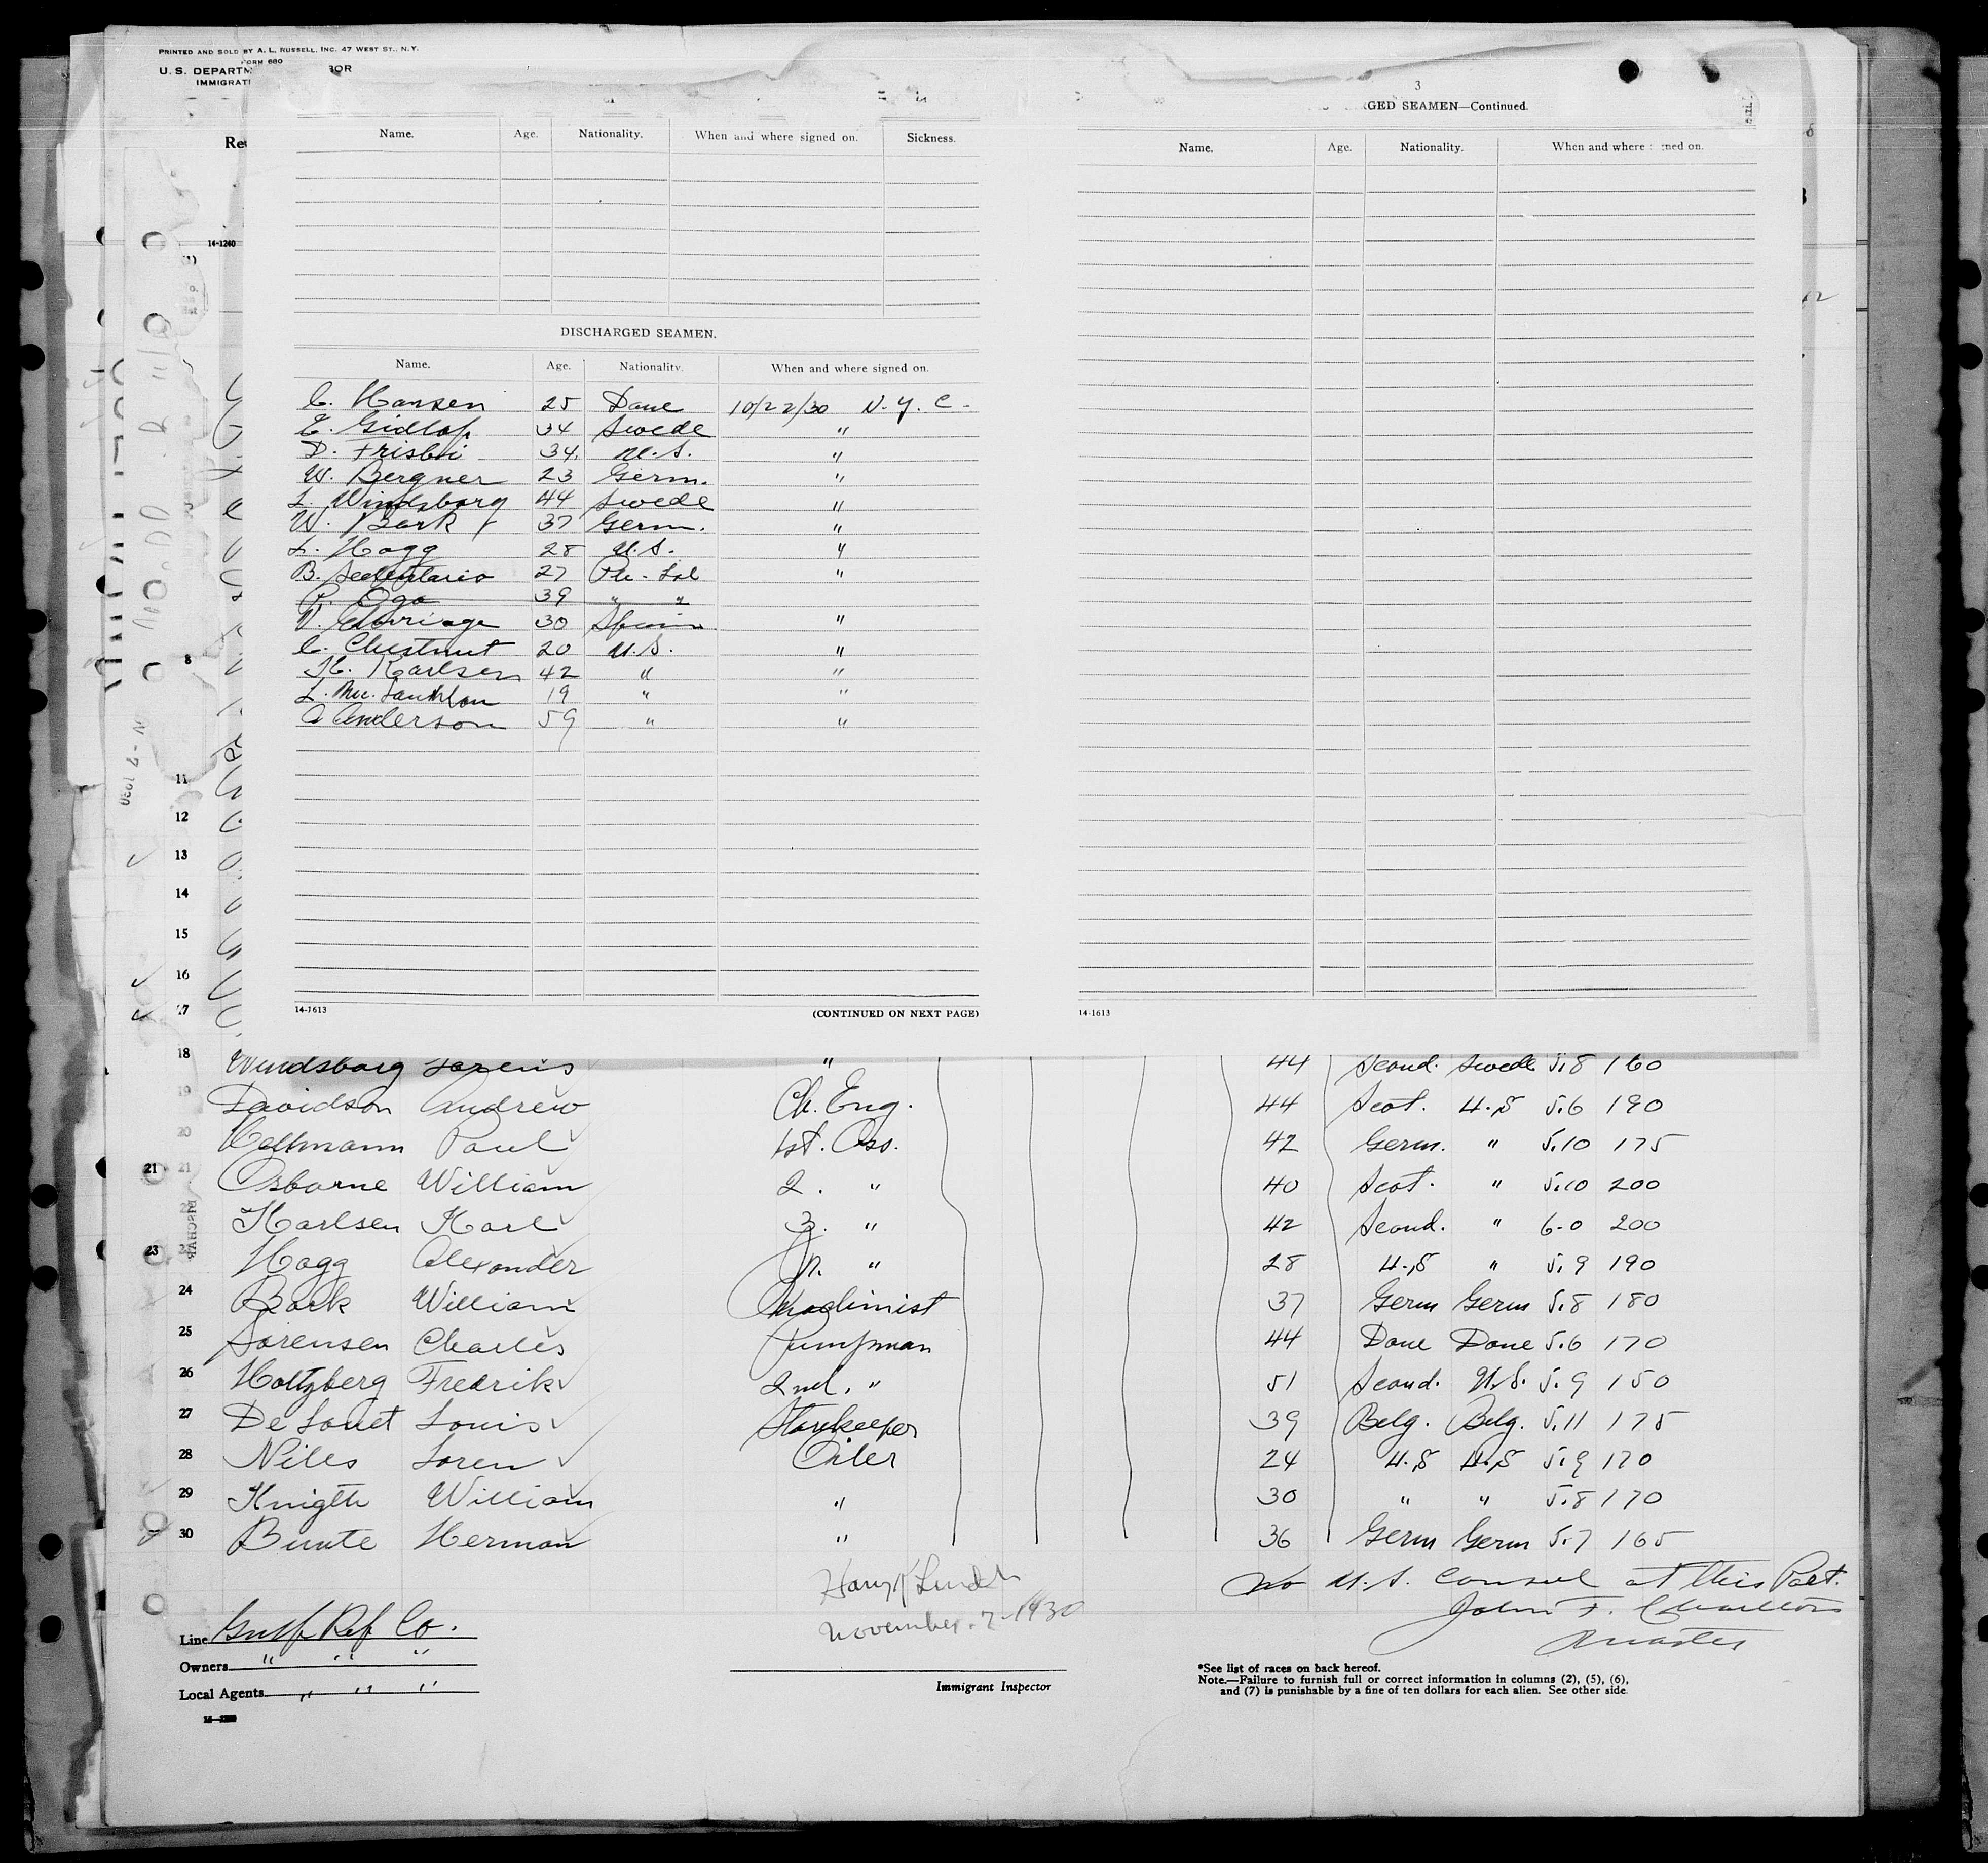 PRINTED AND SOLD BY A. L. RUSSELL, INC. 47 WEST ST., N.Y.
FORM 680
U. S. DEPARTM OR
IMMIGRAT
Re
14-1240
Name. Age. Nationality. When and where signed on. Sickness.
DISCHARGED SEAMEN.
Name. Age. Nationality. When and where signed on.
C. Hansen 25 Dane 10/22/30 N.Y.C.
E. Gidlof 34 Swede "
D. Frisbie 34 U.S. "
W. Bergner 23 Germ. "
L. Windsborg 44 Swede "
W. Bark 37 Germ. "
L. Hogg 28 U.S. "
B. 27 "
Oga 39 " "
30 "
C. Chestnut 20 U.S. "
K. Karlsen 42 " "
L. 19 " "
Anderson 59 " "
14-1613 (CONTINUED ON NEXT PAGE)
3
GED SEAMEN—Continued.
Name. Age. Nationality. When and where ned on.
14-1613
8
11
12
13
14
15
16
17
18 Windsborg Lorens " 44 Scand. Swede 5.8 160
19 Davidson Andrew Ch. Eng. 44 Scot. U.S 5.6 190
20 Paul 1st. Ass. 42 Germ. " 5.10 175
21 21 Osborne William 2. " 40 Scot. " 5.10 200
Karlsen Karl 3. " 42 Scand. " 6-0 200
23 Hogg Alexander Jr. " 28 U.S " 5.9 190
24 Bark William Machinist 37 Germ Germ 5.8 180
25 Sorensen Charles Pumpman 44 Dane Dane 5.6 170
26 Holtzberg Fredrik 2nd. " 51 Scand. U.S. 5.9 150
27 De Louis Storekeeper 39 Belg. Belg. 5.11 175
28 Niles Loren Oiler 24 U.S U.S 5.9 170
29 Knigth William " 30 " " 5.8 170
30 Bunte Herman " 36 Germ Germ 5.7 165
No U.S. Consul at this Port.
John F.
Master
Harry
November. 7-1930
Line Gulf Ref Co.
Owners " " "
Local Agents " " "
Immigrant Inspector
*See list of races on back hereof.
Note.—Failure to furnish full or correct information in columns (2), (5), (6),
and (7) is punishable by a fine of ten dollars for each alien. See other side.